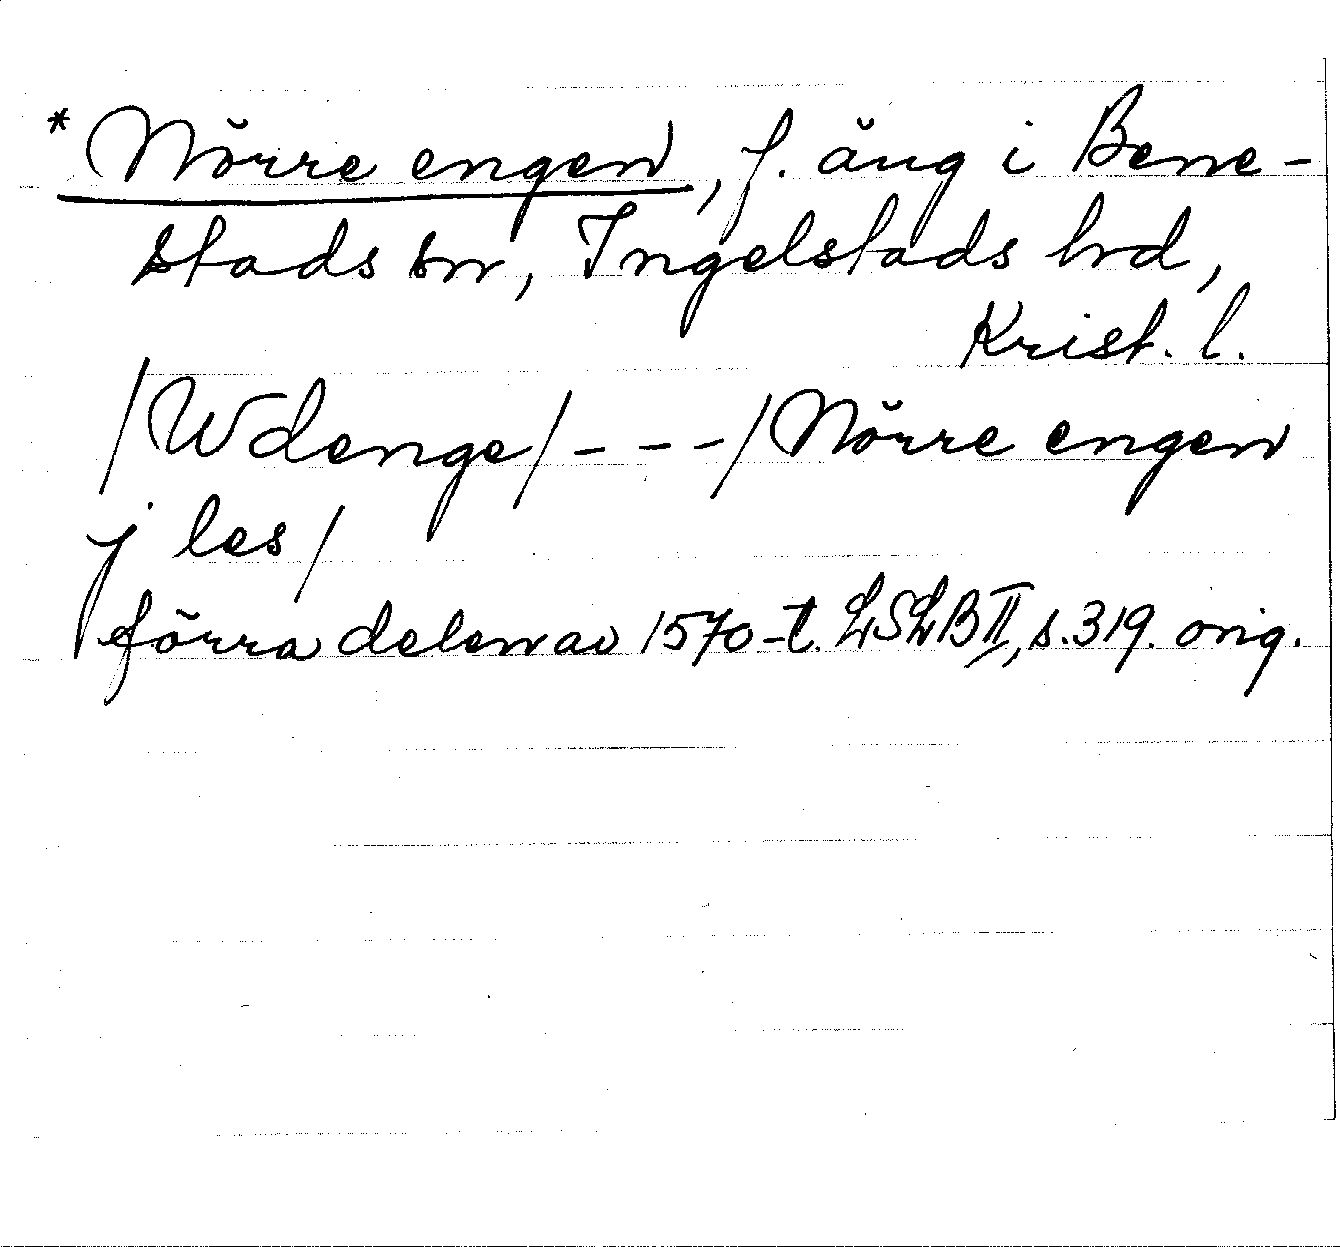 * Nörre engen, f. äng i Bene-
stads sn, Ingelstads hrd,
Krist. l.
/Wdenge/ - - - /Nörre engen
j les/
förra delen av 1570-t. LSLB II, s. 319. orig.